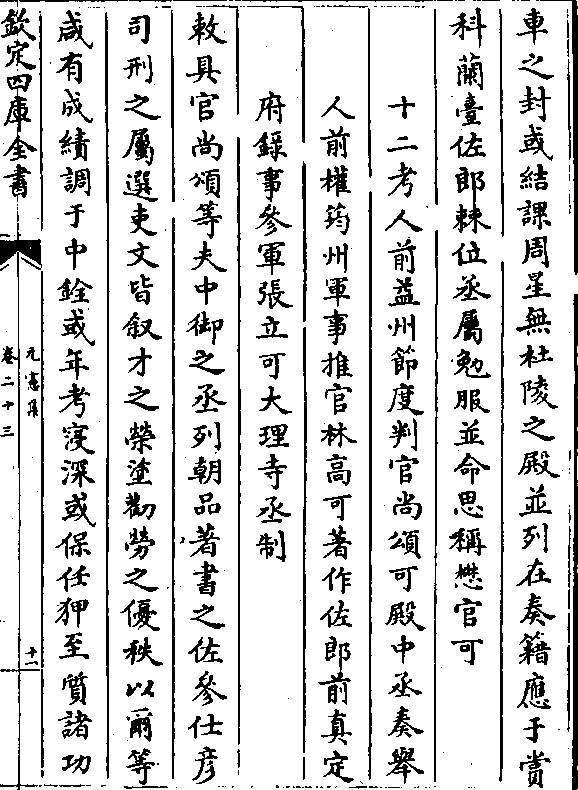 車之封或結課周星無杜陵之殿並列在奏籍應于賞
科蘭臺佐郎棘位丞屬勉服並命思稱懋官可
十二考人前益州節度判官尚頌可殿中丞奏舉
人前權筠州軍事推官林高可著作佐郎前真定
府錄事參軍張立可大理寺丞制
敕具官尚頌等夫中御之丞列朝品著書之佐參仕彦
司刑之屬選吏文皆叙才之榮塗勸勞之優秩以爾等
咸有成績調于中銓或年考寖深或保任狎至質諸功
欽定四庫全書
元憲集
卷二十三
十一